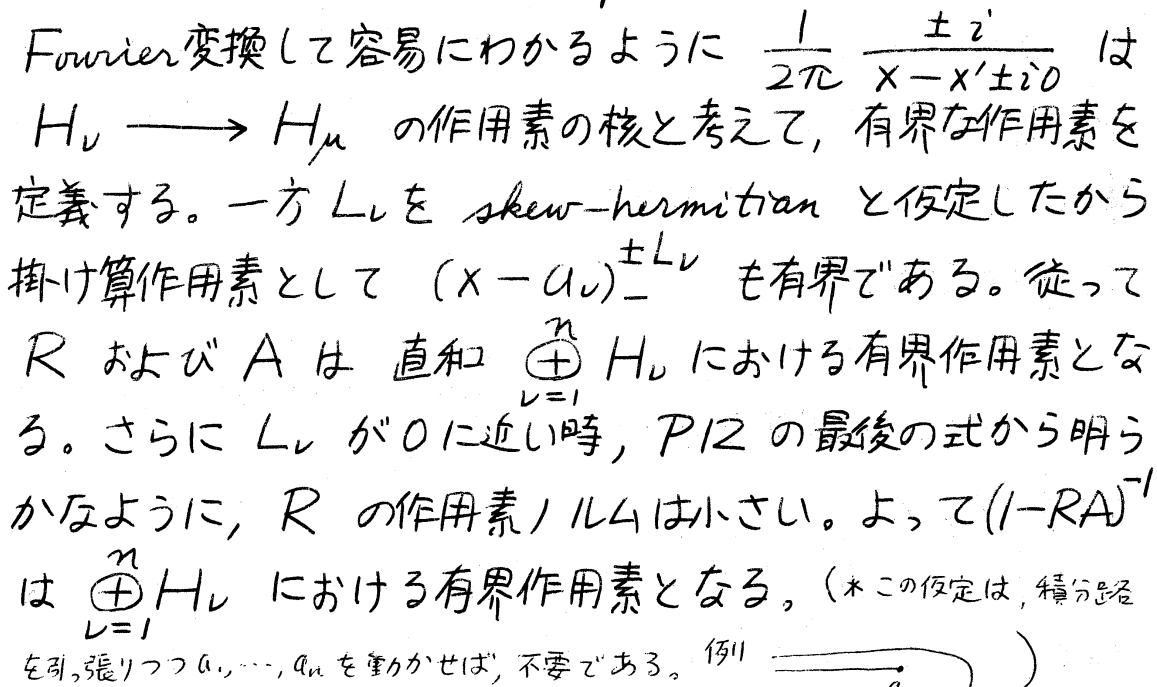 Fourier変換して容易にわかるように $\frac{1}{2\pi} \frac{\pm i}{x-x'\pm i0}$ は
$H_\nu \longrightarrow H_\mu$ の作用素の核と考えて, 有界な作用素を
定義する。一方 $L_\nu$ を skew-hermitian と仮定したから
掛け算作用素として $(x-a_\nu)_-^{\pm L_\nu}$ も有界である。従って
R および A は 直和 $\bigoplus_{\nu=1}^{n} H_\nu$ における有界作用素とな
る。さらに $L_\nu$ が0に近い時, P12 の最後の式から明ら
かなように, R の作用素ノルムは小さい。よって$(1-RA)^{-1}$
は $\bigoplus_{\nu=1}^{n} H_\nu$ における有界作用素となる。(* この仮定は, 積分路
を引っ張りつつ $a_1, \cdots, a_n$ を動かせば, 不要である。例 )